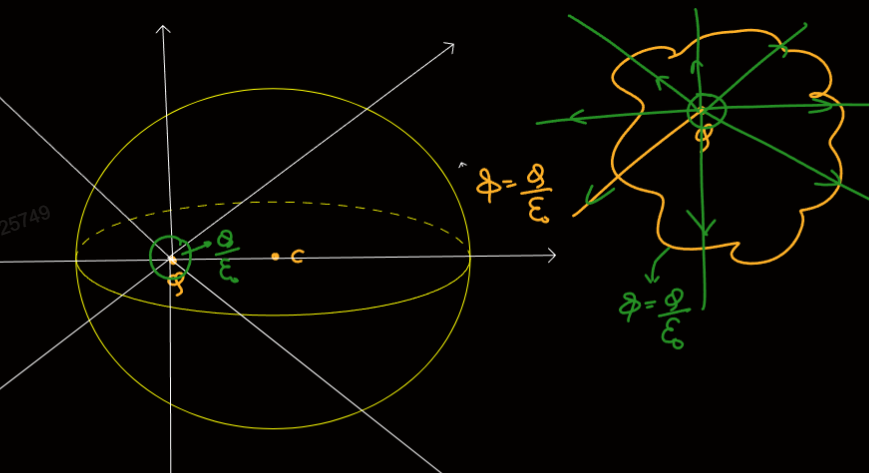 25749
Q
Q/ε₀
C
φ = Q/ε₀
Q
φ = Q/ε₀